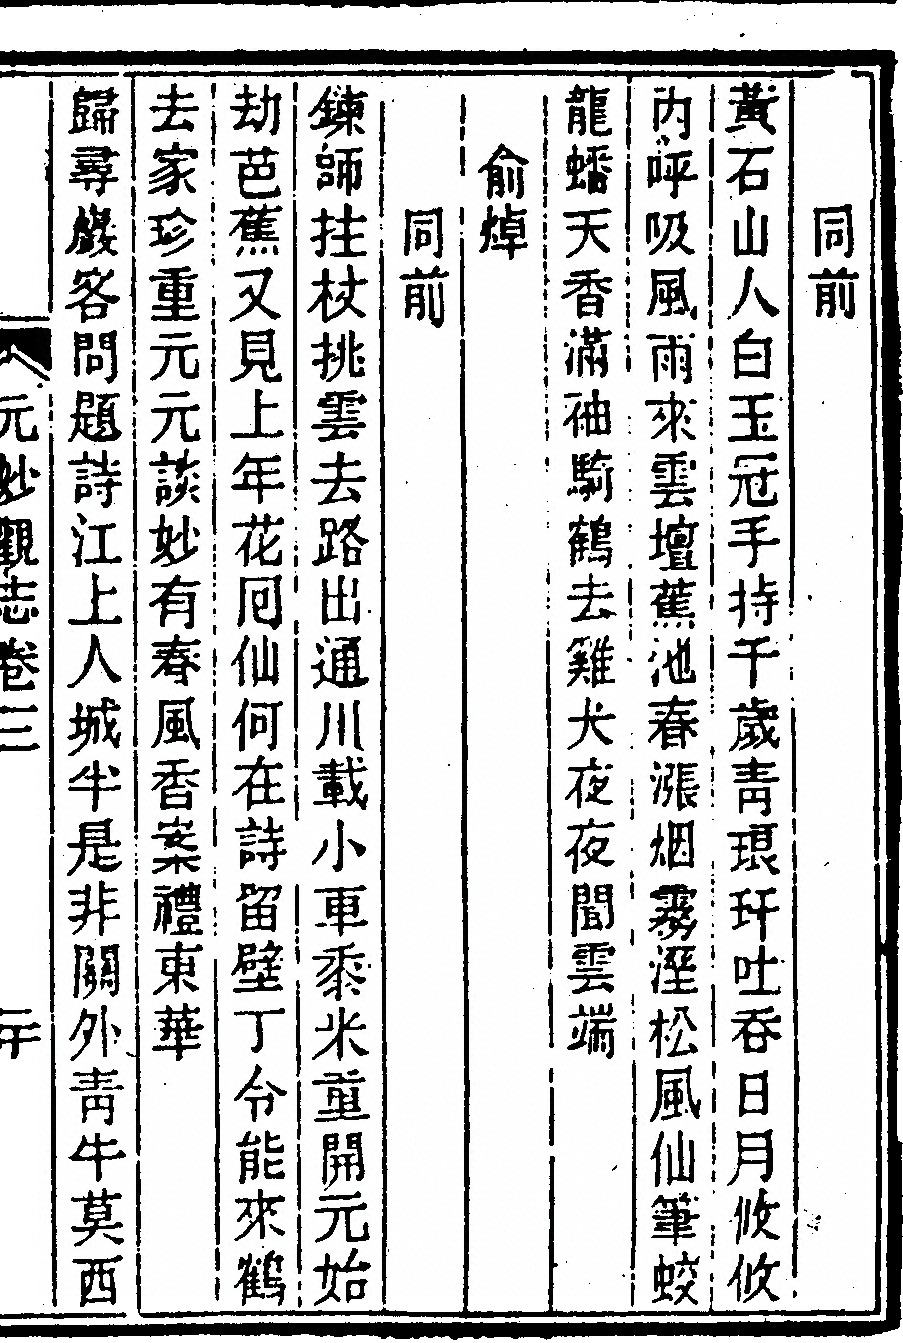 同前
黃石山人白玉冠手持千歲青琅玕吐吞日月攸攸
內呼吸風雨來雲壇蕉池春漲烟霧溼松風仙筆蛟
龍蟠天香滿袖騎鶴去雞犬夜夜聞雲端
俞焯
同前
鍊師拄杖挑雲去路出通川載小車黍米重開元始
劫芭蕉又見上年花卮仙何在詩留壁丁令能來鶴
去家珍重元元談妙有春風香案禮東華
歸尋巖客問題詩江上人城半是非關外青牛莫西
元妙觀志卷三
二十